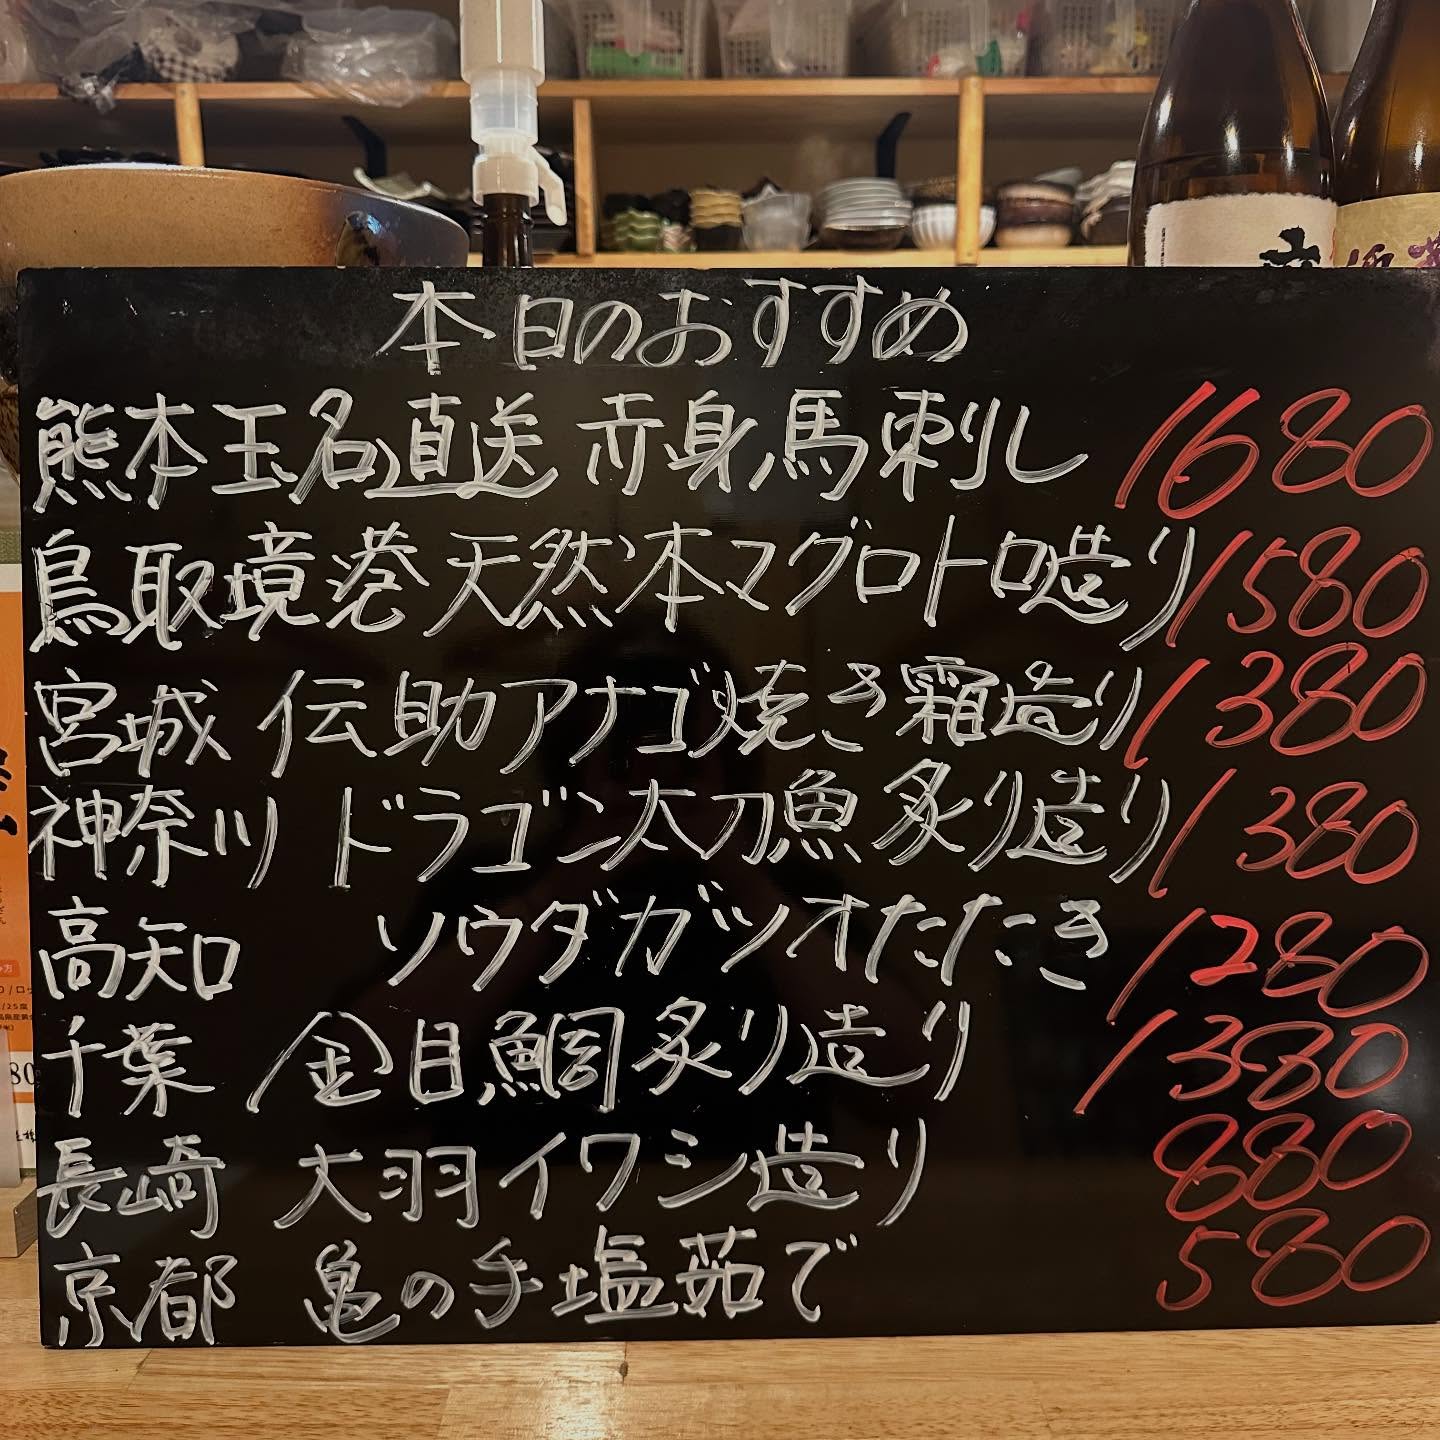 本日のおすすめ
熊本玉名直送 赤身馬刺し 1680
鳥取境港天然本マグロトロ造り 1580
宮城 伝助アナゴ焼き霜造り 1380
神奈川 ドラゴン太刀魚炙り造り 1380
高知 ソウダガツオたたき 1280
千葉 金目鯛炙り造り 1380
長崎 大羽イワシ造り 880
京都 亀の手塩茹で 580